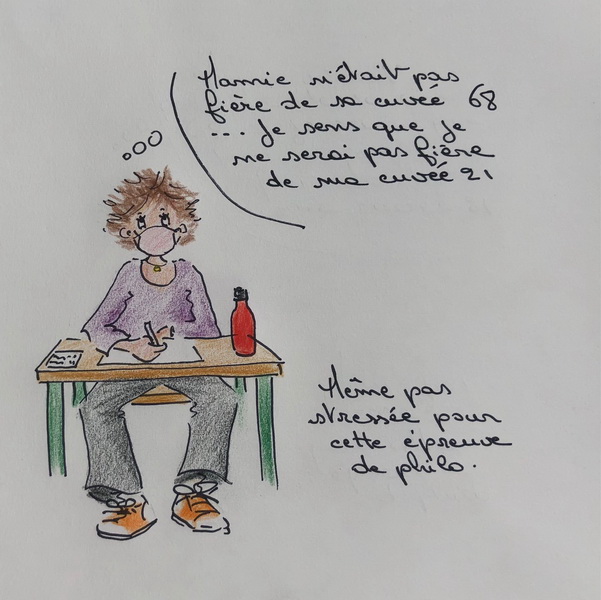 Mamie n'était pas
fière de sa cuvée 68
... Je sens que je
ne serai pas fière
de ma cuvée 21
Même pas
stressée pour
cette épreuve
de philo.